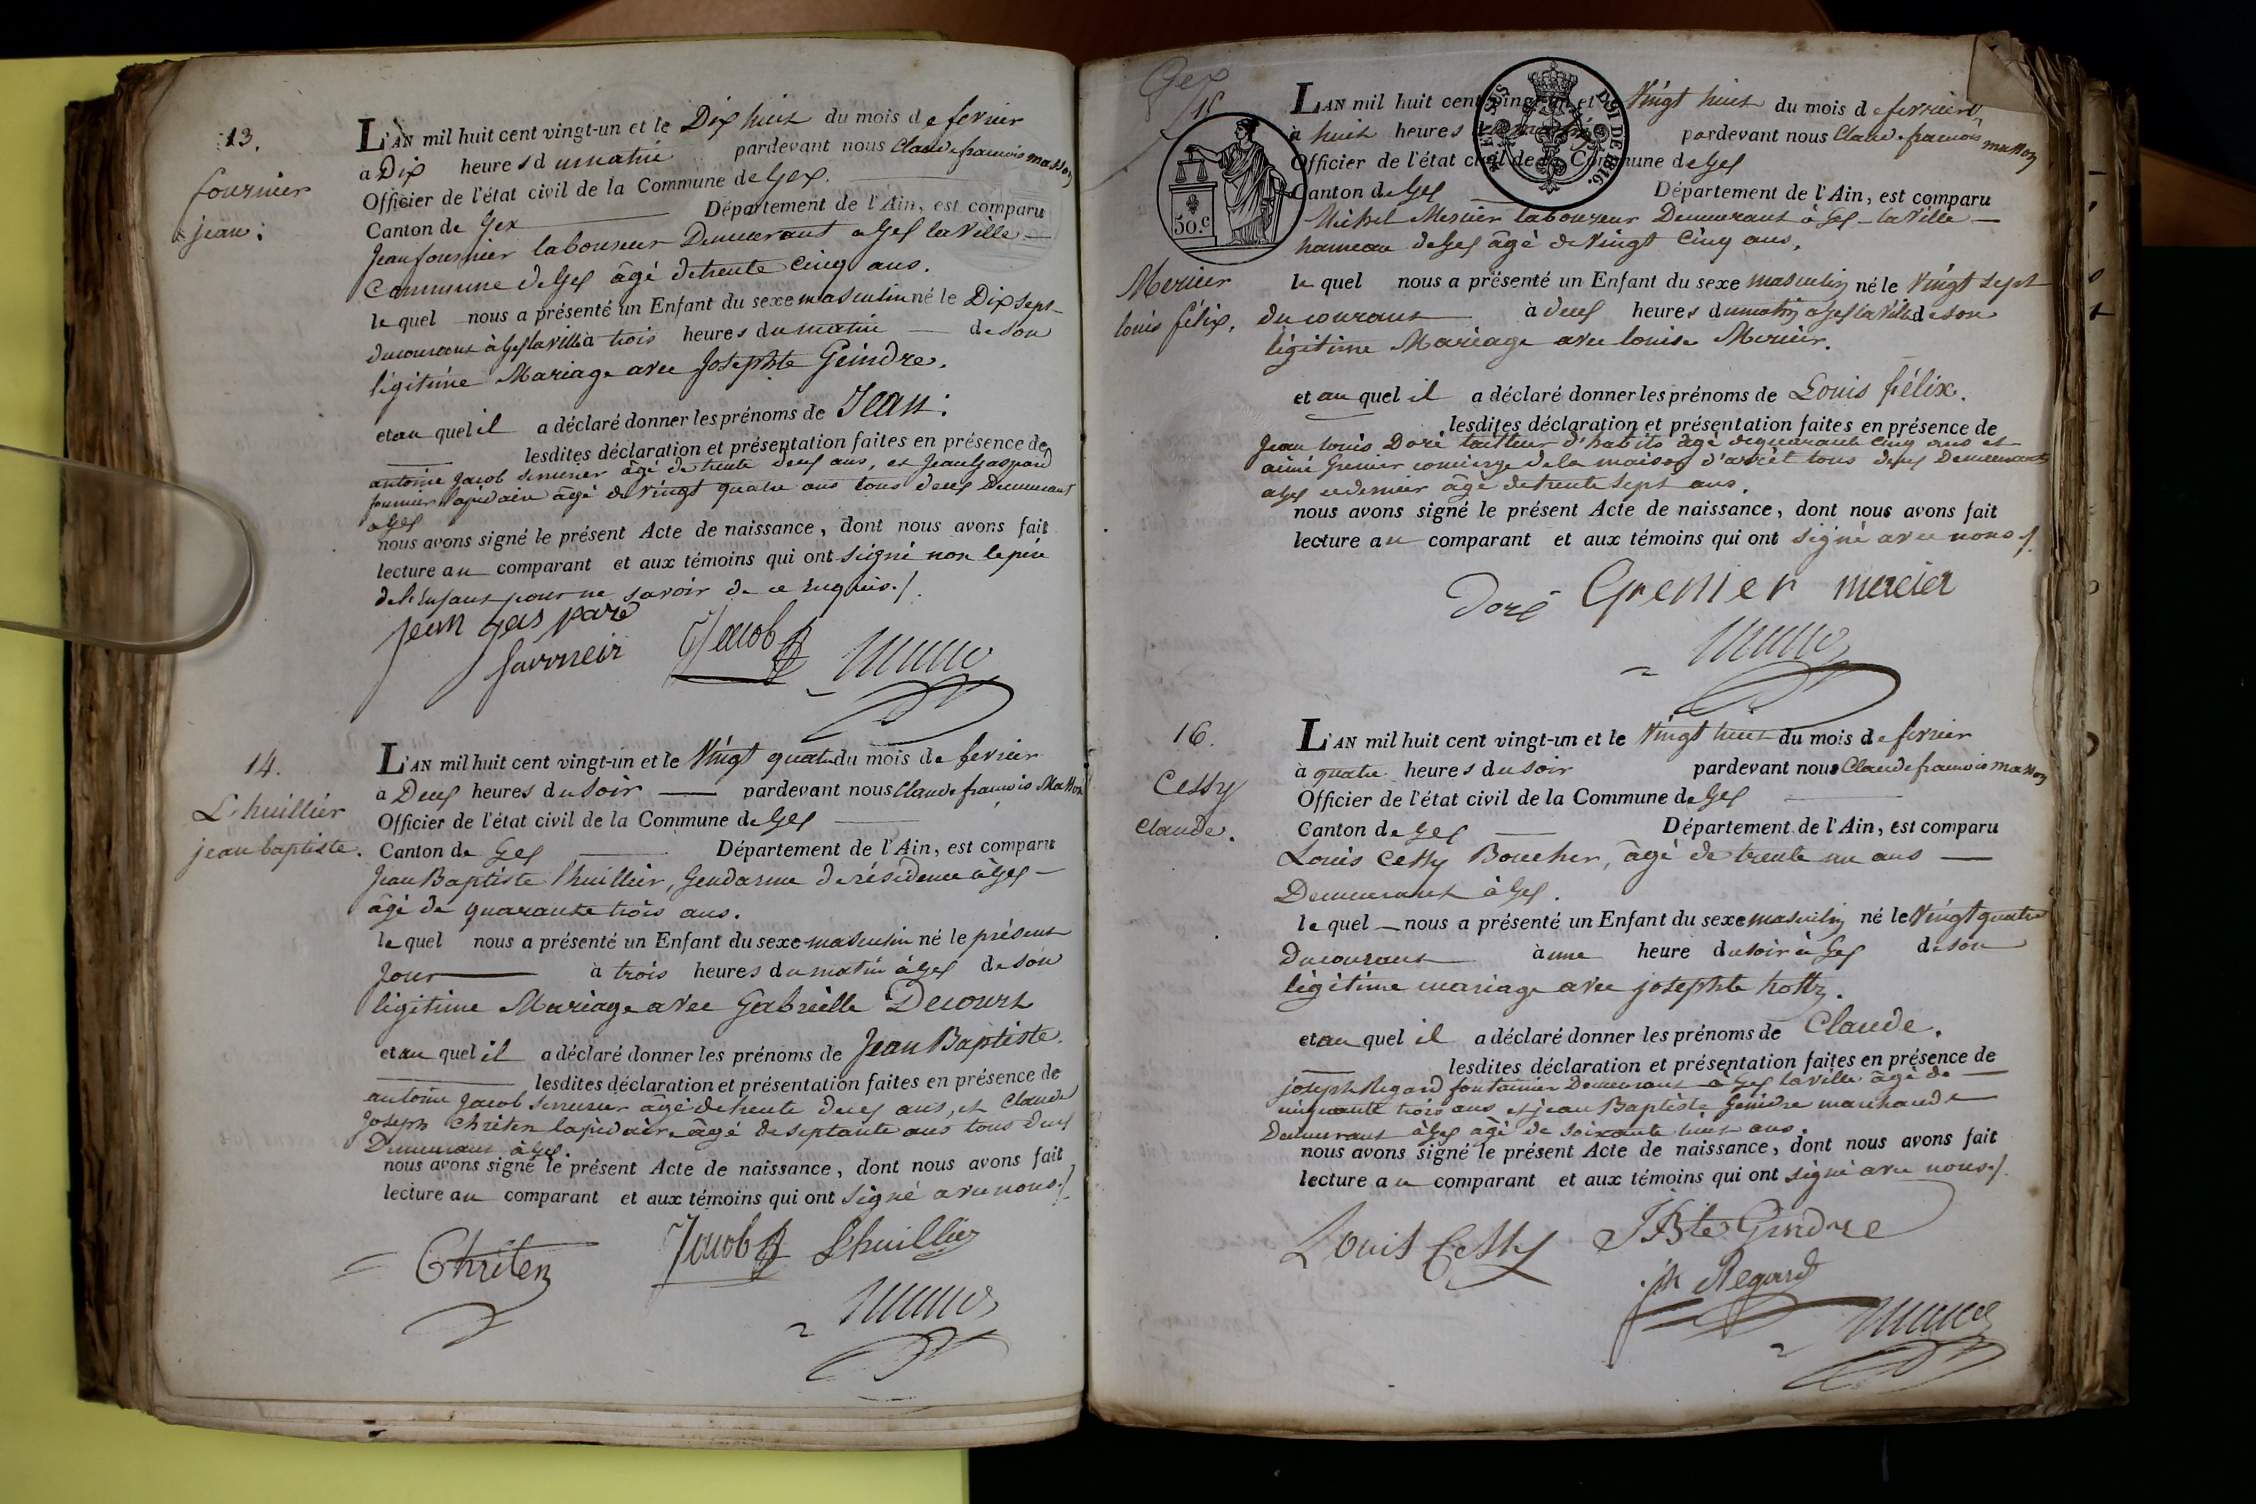 13.
fournier
jean:
L'AN mil huit cent vingt-un et le Dix huit du mois de fevrier
à Dix heures du matin pardevant nous Claude françois masson
Officier de l'état civil de la Commune de Gex.
Canton de Gex Département de l'Ain, est comparu
Jean fournier laboureur Demeurant a Gex la Ville
Commune de Gex âgé de trente cinq ans.
le quel nous a présenté un Enfant du sexe masculin né le Dix sept
du courant à Gex la ville à trois heures du matin de son
légitime Mariage avec Josephte Geindre.
et au quel il a déclaré donner les prénoms de Jean:
lesdites déclaration et présentation faites en présence de
antoine Jacob serrurier âgé de trente deux ans, et Jean Gaspard
fournier lapidaire âgé de vingt quatre ans tous deux Demeurant
a Gex
nous avons signé le présent Acte de naissance, dont nous avons fait
lecture au comparant et aux témoins qui ont signé non le père
de l'enfant pour ne savoir de ce enquis./.
jean gaspard
Jacob
14.
L'huillier
jean baptiste.
L'AN mil huit cent vingt-un et le Vingt quatre du mois de fevrier
à Deux heures du soir pardevant nous Claude françois Masson
Officier de l'état civil de la Commune de Gex
Canton de Gex Département de l'Ain, est comparu
Jean Baptiste l'huillier, Gendarme de résidence à Gex
âgé de quarante trois ans.
le quel nous a présenté un Enfant du sexe masculin né le présent
Jour à trois heures du matin à Gex de son
légitime Mariage avec Gabrielle Decourt
et au quel il a déclaré donner les prénoms de Jean Baptiste.
lesdites déclaration et présentation faites en présence de
antoine Jacob serrurier âgé de trente deux ans, et Claude
Joseph Chrêten lapidaire âgé de septante ans tous deux
Demeurant à Gex.
nous avons signé le présent Acte de naissance, dont nous avons fait
lecture au comparant et aux témoins qui ont signé avec nous./.
Chriten Jacob Lhuillier
Gex
50.c
DE 1816.
L'AN mil huit cent vingt-un et le Vingt huit du mois de fevrier
à huit heures du matin pardevant nous Claude françois masson
Officier de l'état civil de la Commune de Gex
Canton de Gex Département de l'Ain, est comparu
Michel Mercier laboureur Demeurant à Gex la Ville
hameau de Gex âgé de vingt cinq ans.
Mercier
louis félix.
le quel nous a présenté un Enfant du sexe masculin né le vingt sept
du courant à deux heures du matin a Gex la Ville de son
légitime Mariage avec louise Mercier.
et au quel il a déclaré donner les prénoms de Louis félix.
lesdites déclaration et présentation faites en présence de
Jean louis Doré tailleur d'habits âgé de quarante cinq ans et
aimé Grenier concierge de la maison d'arrêt tous deux Demeurants
a Gex ce dernier âgé de trente sept ans.
nous avons signé le présent Acte de naissance, dont nous avons fait
lecture au comparant et aux témoins qui ont signé avec nous./.
Doré Grenier mercier
16.
Cessy
Claude.
L'AN mil huit cent vingt-un et le Vingt huit du mois de fevrier
à quatre heures du soir pardevant nous Claude françois masson
Officier de l'état civil de la Commune de Gex
Canton de Gex Département de l'Ain, est comparu
Louis Cessy Boucher, âgé de trente un ans
Demeurant à Gex.
le quel nous a présenté un Enfant du sexe masculin né le Vingt quatre
Du courant à une heure du soir à Gex de son
légitime mariage avec josephte hottz.
et au quel il a déclaré donner les prénoms de Claude.
lesdites déclaration et présentation faites en présence de
joseph Regard fontainier Demeurant a Gex la ville âgé de
cinquante trois ans et jean Baptiste Geindre marchand
Demeurant à Gex âgé de soixante huit ans.
nous avons signé le présent Acte de naissance, dont nous avons fait
lecture au comparant et aux témoins qui ont signé avec nous./.
Louis Cessy JBte Gindre
jh Regard